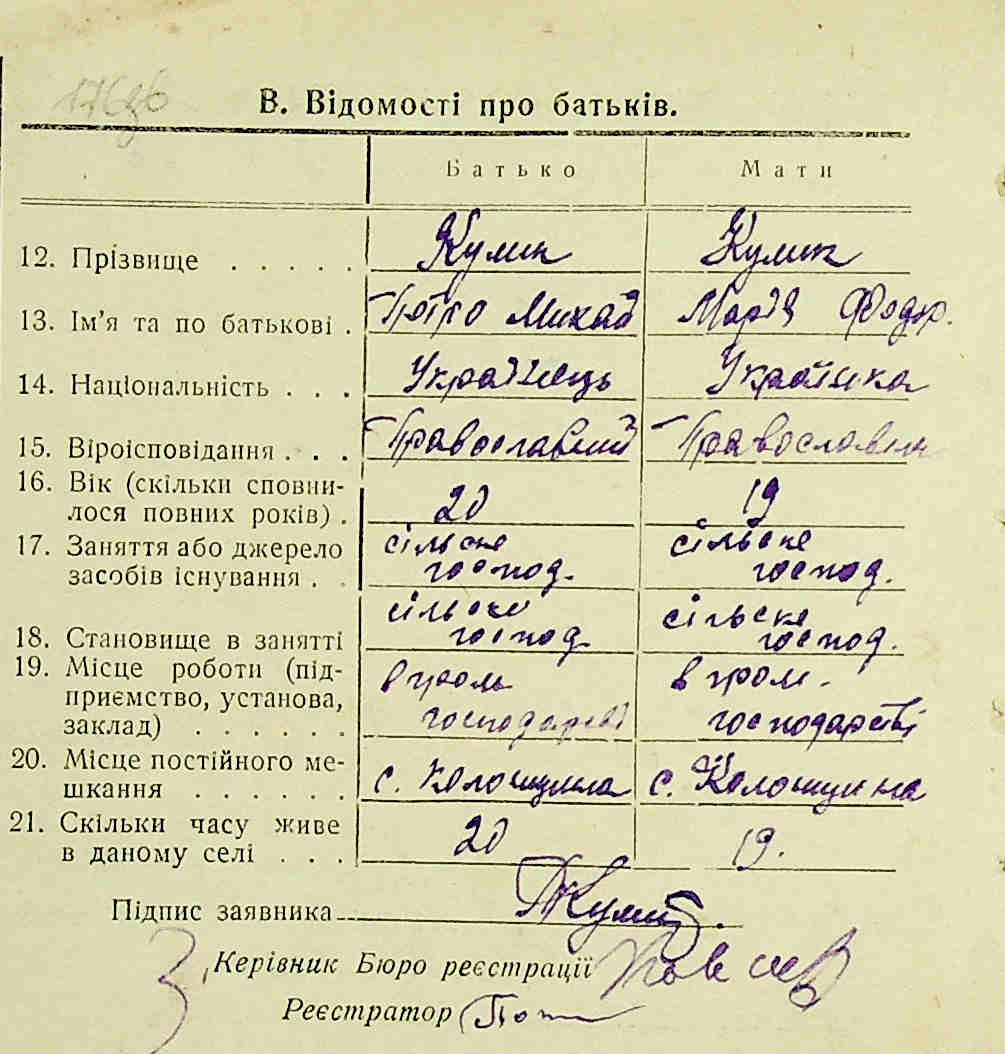 В. Відомості про батьків.
Батько Мати
12. Прізвище . . . . . Кулик Кулик
13. Ім'я та по батькові . Петро Михай Марія Федор.
14. Національність . . . Українець Українка
15. Віроісповідання . . . Православний Православна
16. Вік (скільки сповни-
лося повних років) . 20 19
17. Заняття або джерело сільске сільске
засобів існування . . господ. господ.
сільске сільске
18. Становище в занятті господ. господ.
19. Місце роботи (під- в гром.
приємство, установа, господарстві господарстві
заклад) . . . . . .
20. Місце постійного ме-
шкання . . . . . . с. Колощина с. Колощина
21. Скільки часу живе
в даному селі . . . 20 19.
Підпис заявника Кулик
Керівник Бюро реєстрації
Реєстратор